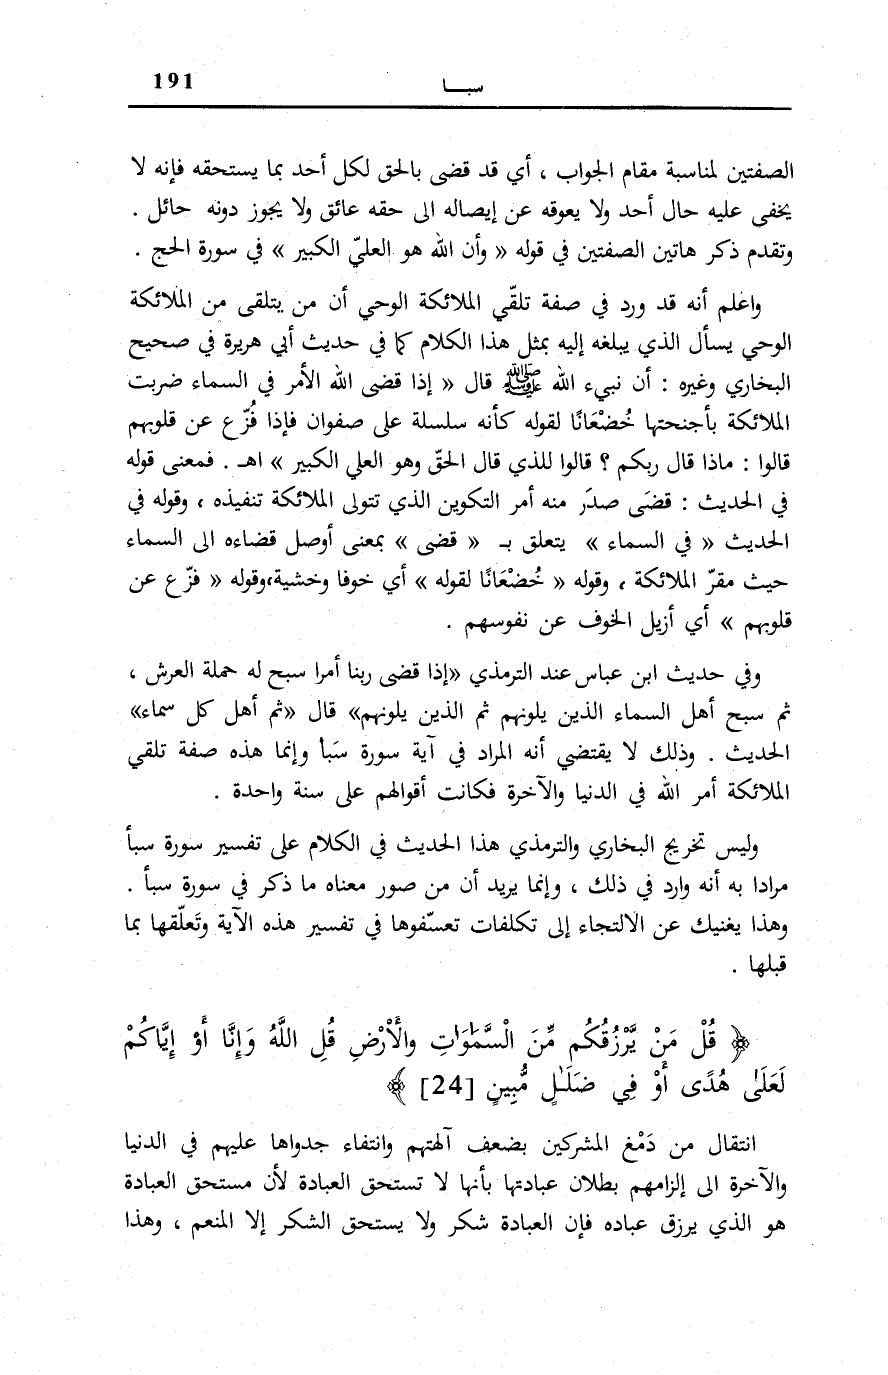 سبــا 191
الصفتين لمناسبة مقام الجواب ، أي قد قضى بالحق لكل أحد بما يستحقه فإنه لا
يخفى عليه حال أحد ولا يعوقه عن إيصاله الى حقه عائق ولا يجوز دونه حائل .
وتقدم ذكر هاتين الصفتين في قوله « وأن الله هو العليّ الكبير » في سورة الحج .
واعلم أنه قد ورد في صفة تلقّي الملائكة الوحي أن من يتلقى من الملائكة
الوحي يسأل الذي يبلغه إليه بمثل هذا الكلام كما في حديث أبي هريرة في صحيح
البخاري وغيره : أن نبيء الله ﷺ قال « إذا قضى الله الأمر في السماء ضربت
الملائكة بأجنحتها خُضْعَانًا لقوله كأنه سلسلة على صفوان فإذا فُزّع عن قلوبهم
قالوا : ماذا قال ربكم ؟ قالوا للذي قال الحقّ وهو العلي الكبير » اهـ . فمعنى قوله
في الحديث : قضَى صدَر منه أمر التكوين الذي تتولى الملائكة تنفيذه ، وقوله في
الحديث « في السماء » يتعلق بـ « قضى » بمعنى أوصل قضاءه الى السماء
حيث مقرّ الملائكة ، وقوله « خُضْعَانًا لقوله » أي خوفا وخشية،وقوله « فزّع عن
قلوبهم » أي أزيل الخوف عن نفوسهم .
وفي حديث ابن عباس عند الترمذي «إذا قضى ربنا أمرا سبح له حملة العرش ،
ثم سبح أهل السماء الذين يلونهم ثم الذين يلونهم» قال «ثم أهل كل سماء»
الحديث . وذلك لا يقتضي أنه المراد في آية سورة سَبأ وإنما هذه صفة تلقي
الملائكة أمر الله في الدنيا والآخرة فكانت أقوالهم على سنة واحدة .
وليس تخريج البخاري والترمذي هذا الحديث في الكلام على تفسير سورة سبأ
مرادا به أنه وارد في ذلك ، وإنما يريد أن من صور معناه ما ذكر في سورة سبأ .
وهذا يغنيك عن الالتجاء إلى تكلفات تعسّفوها في تفسير هذه الآية وتَعلّقها بما
قبلها .
﴿ قُلْ مَنْ يَّرْزُقُكُم مِّنَ الْسَّمَٰوَٰتِ والْأَرْضِ قُلِ اللَّهُ وَإِنَّا أَوْ إِيَّاكُمْ
لَعَلَىٰ هُدًى أَوْ فِي ضَلَـٰلٍ مُّبِينٍ [24] ﴾
انتقال من دَمْغ المشركين بضعف آلهتهم وانتفاء جدواها عليهم في الدنيا
والآخرة الى إلزامهم بطلان عبادتها بأنها لا تستحق العبادة لأن مستحق العبادة
هو الذي يرزق عباده فإن العبادة شكر ولا يستحق الشكر إلا المنعم ، وهذا